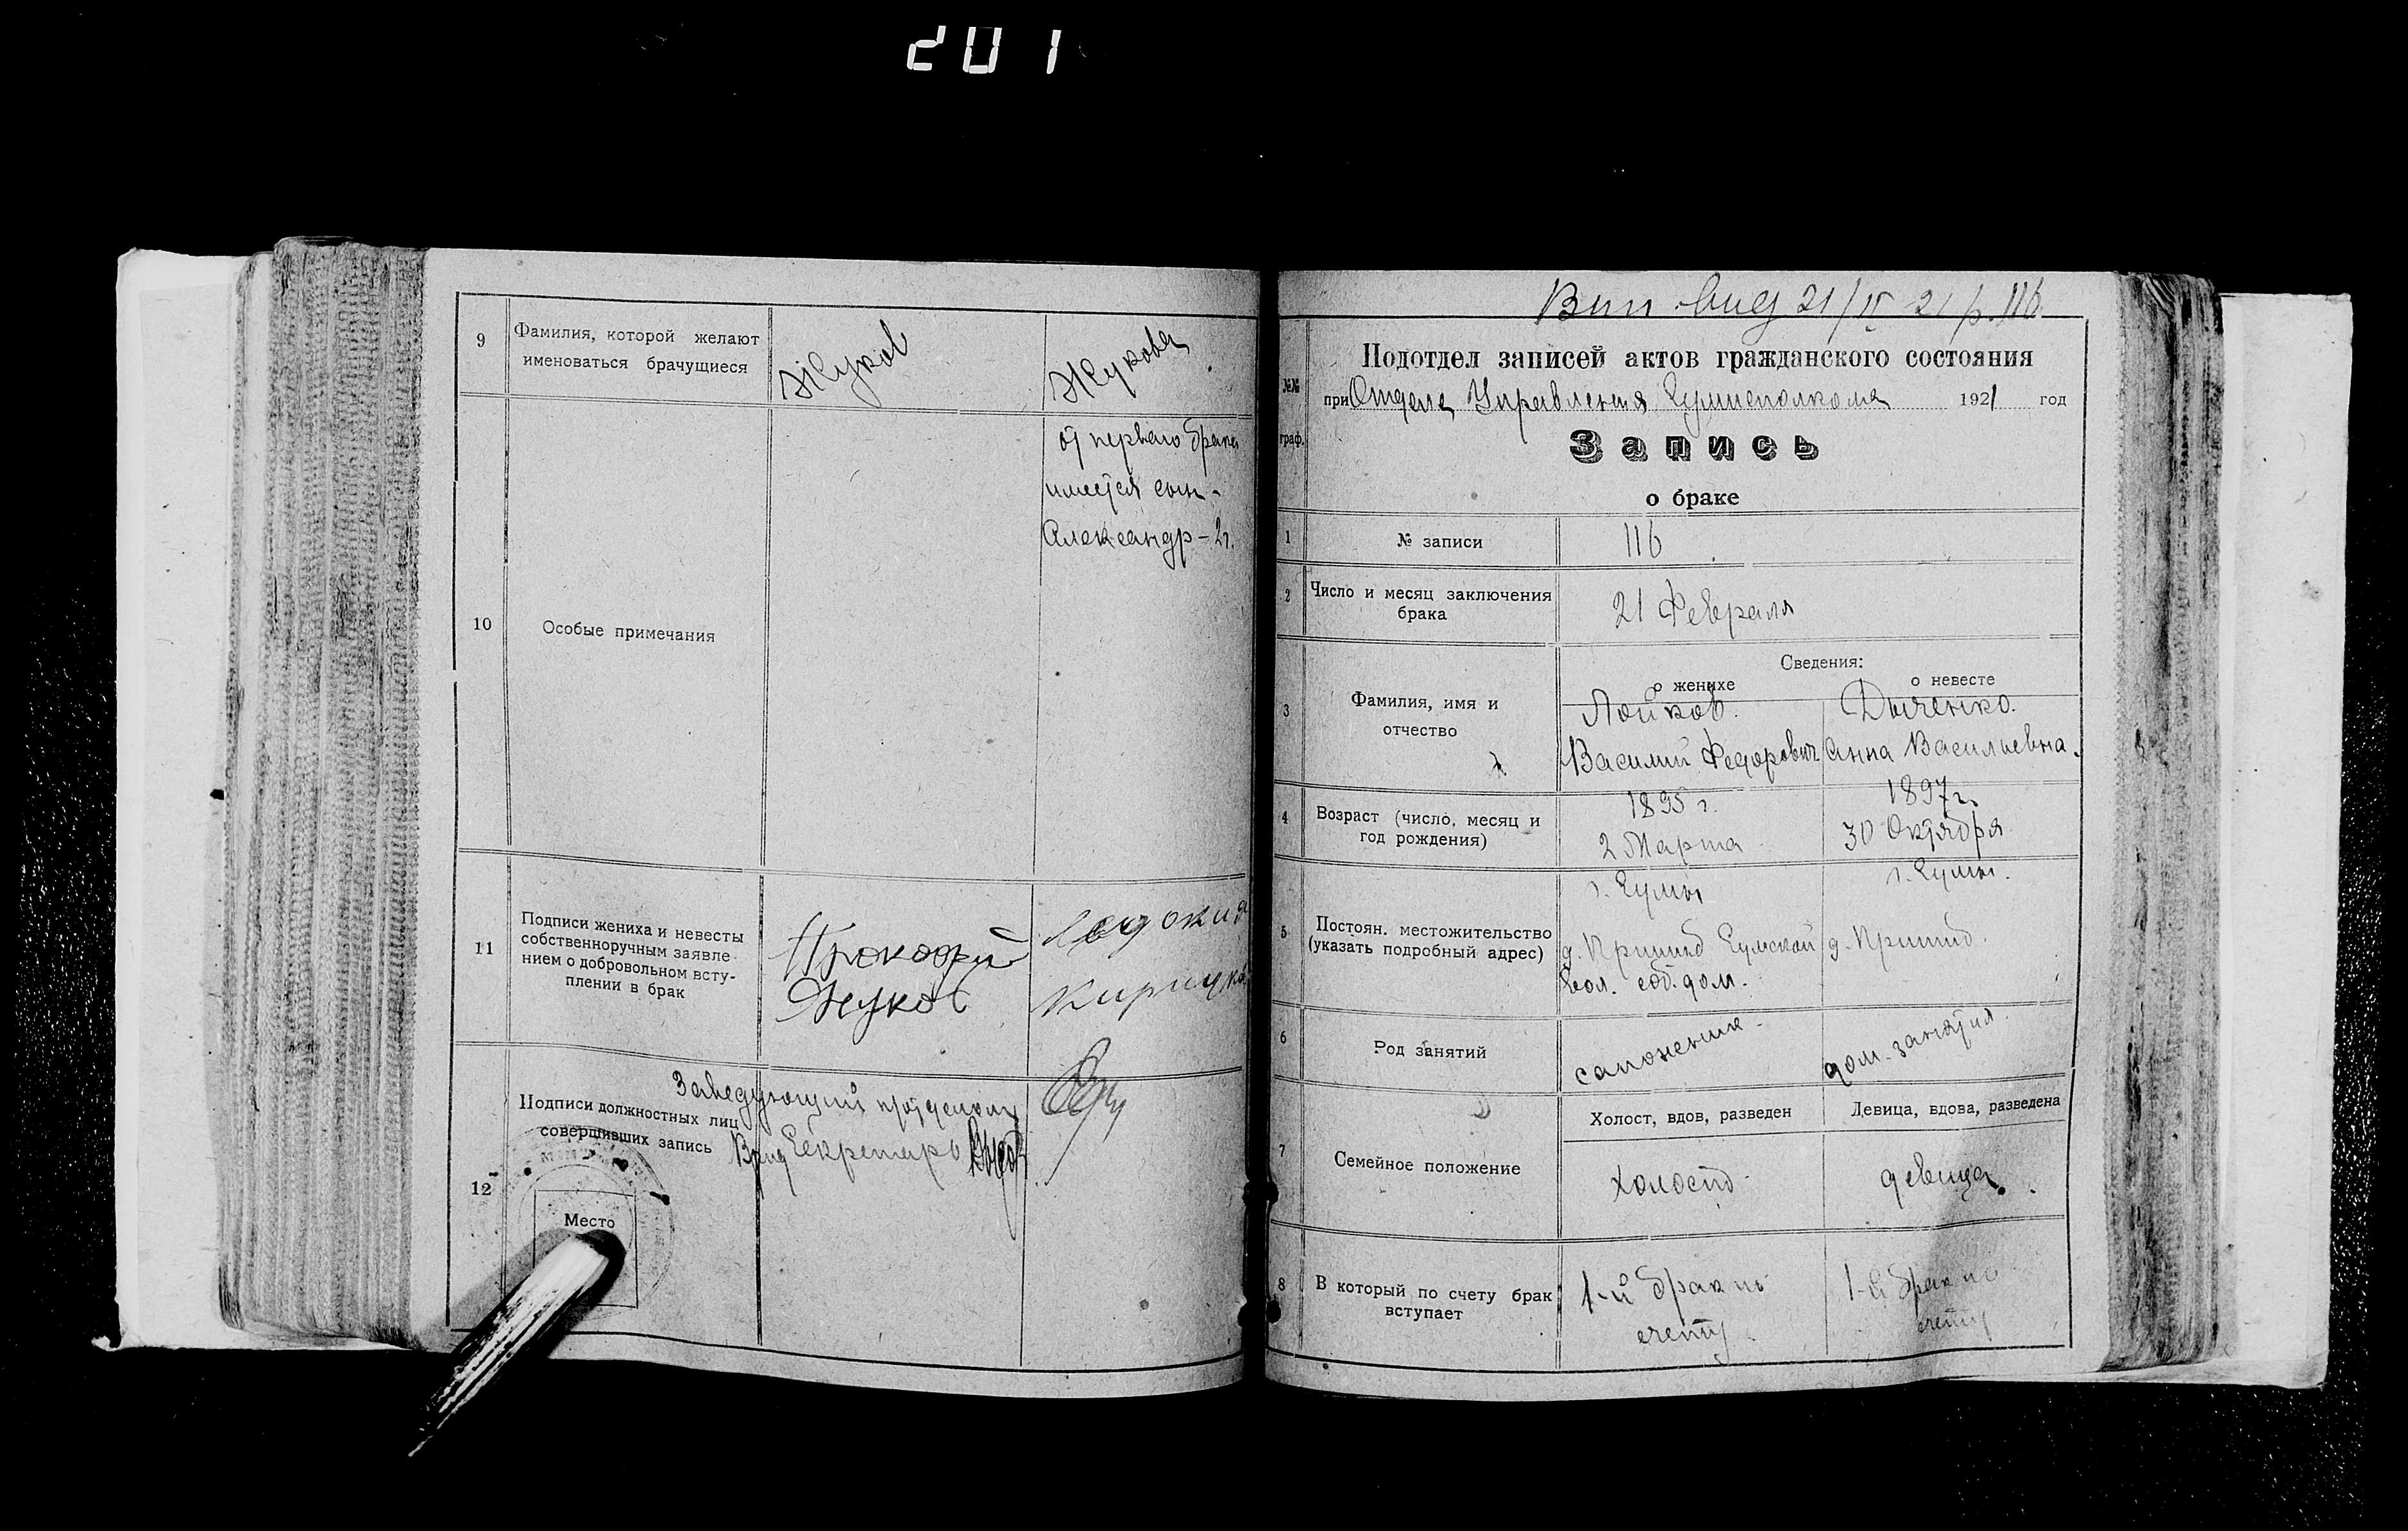 201
9
Фамилия, которой желают
именоваться брачущиеся
Жуков
Жукова
10
Особые примечания
от первого брака
имеется сын -
Александр - 2 г.
11
Подписи жениха и невесты
собственноручным заявле-
нием о добровольном всту-
плении в брак
Прокофий
Жуков
12
Подписи должностных лиц
совершивших запись
Заведующий подотделом
Врид Секретарь
Место
21/II 21 р. 116
№№
граф.
Подотдел записей актов гражданского состояния
при Отделе Управления Сумисполкома 1921 год
Запись
о браке
1
№ записи
116
2
Число и месяц заключения
брака
21 Февраля
3
Фамилия, имя и
отчество
Сведения:
о женихе
о невесте
Лойков.
Дыченко.
Василий Федорович
Анна Васильевна.
4
Возраст (число, месяц и
год рождения)
1895 г.
2 Марта
1897 г.
30 Октября
5
Постоян. местожительство
(указать подробный адрес)
г. Сумы
Сумской
вол. соб. дом.
г. Сумы.
6
Род занятий
сапожник
дом. занятия.
7
Семейное положение
Холост, вдов, разведен
Девица, вдова, разведена
холост
девица
8
В который по счету брак
вступает
1-й брак по
счету
1-й брак по
счету